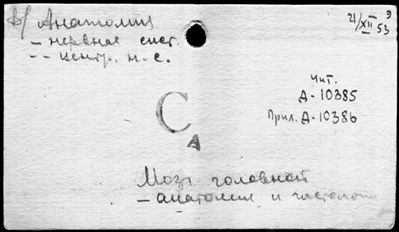 В/ Анатомия
- нервная сист.
-- центр. н.с.
21/XII 53 9
Чит.
Д-10385
Прил. Д-10386
С
А
Мозг головной
- анатомия и гистология